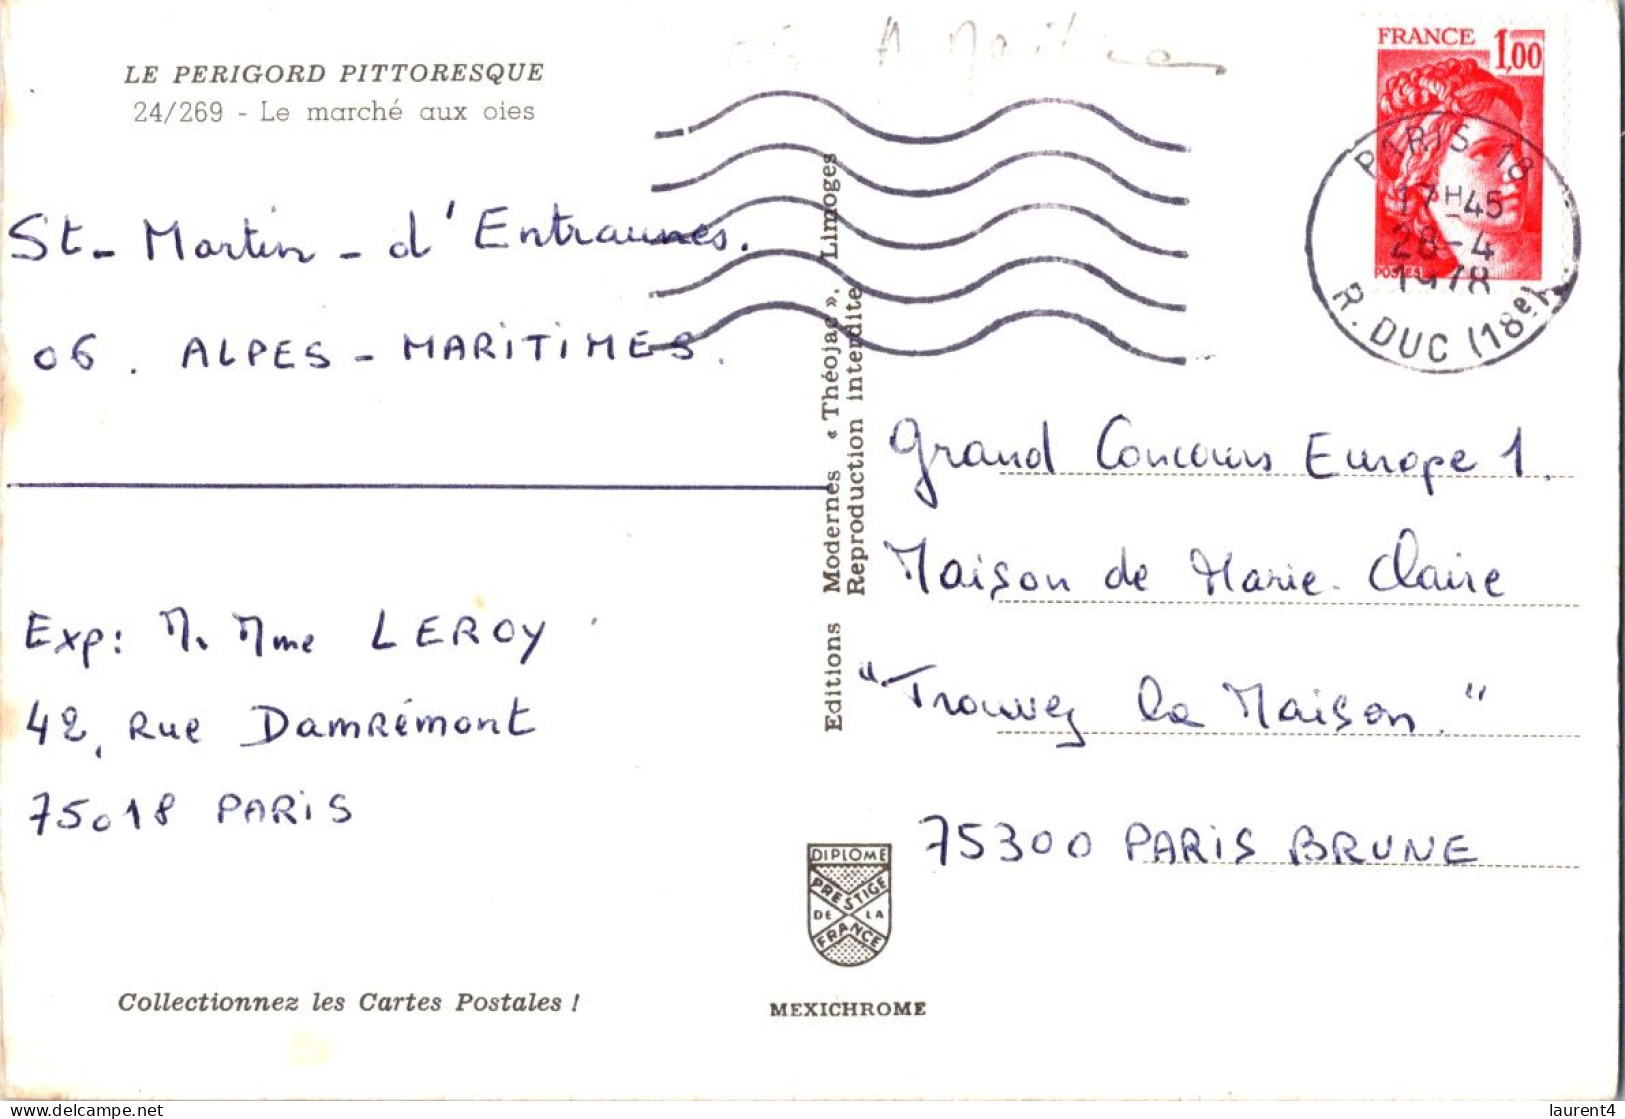 LE PERIGORD PITTORESQUE
24/269 - Le marché aux oies
St-Martin-d'Entraunes.
06. ALPES-MARITIMES.
Exp: M. Mme LEROY
42, Rue Damrémont
75018 PARIS
Collectionnez les Cartes Postales !
Editions Modernes « Théojac ». Limoges
Reproduction interdite
DIPLOME
PRESTIGE
DE LA
FRANCE
MEXICHROME
FRANCE 1,00
POSTES
PARIS 18
17H45
28-4
1978
R. DUC (18e)
Grand Concours Europe 1.
Maison de Marie-Claire
"Trouvez la Maison."
75300 PARIS BRUNE
laurent4